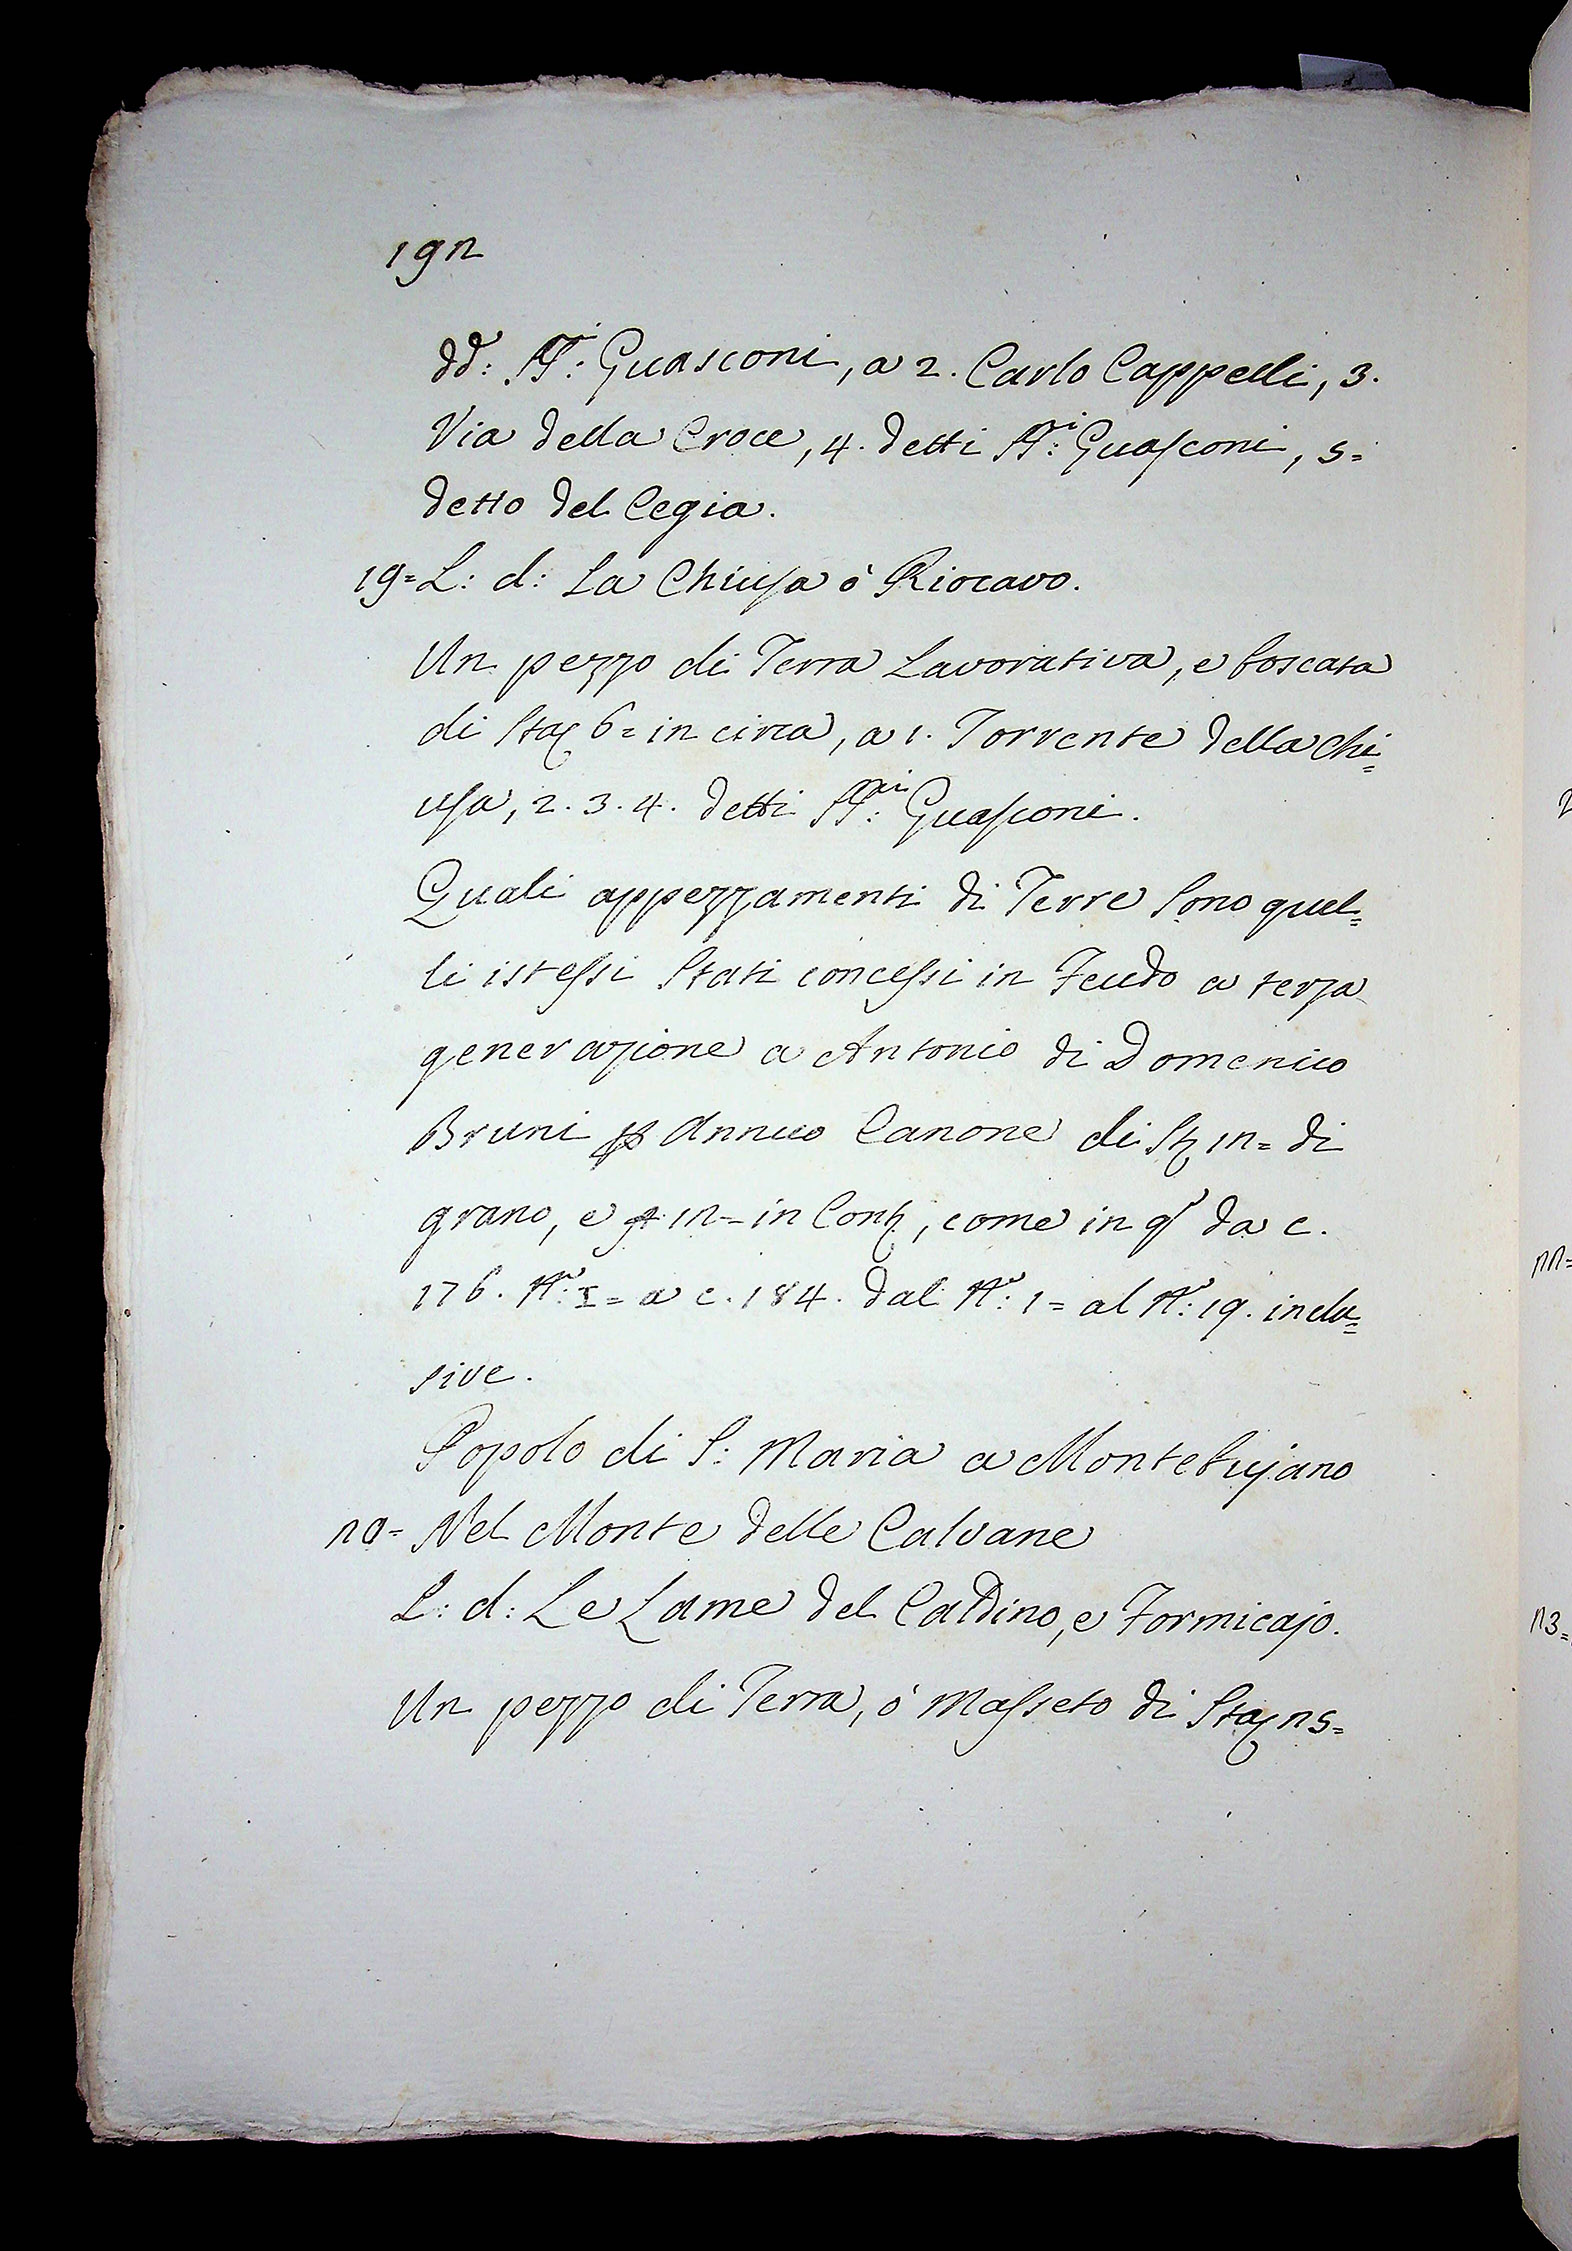 192
dd: SS:ri Guasconi, a 2. Carlo Cappelli, 3.
Via della Croce, 4. detti SS:ri Guasconi, 5=
detto del Cegia.
19= L: d: La Chiusa ò Riocavo.
Un pezzo di Terra Lavorativa, e boscata
di Sta 6= in circa, a 1. Torrente della Chi=
usa, 2. 3. 4. detti SS:ri Guasconi.
Quali appezzamenti di Terre Sono quel=
li istessi Stati concessi in Feudo a terza
generazione a Antonio di Domenico
Bruni p Annuo Canone di St 12= di
grano, e 12= in Cont, come in q da c.
176. N:o I= a c. 184. dal N:o 1= al N:o 19. inclu=
sive.
Popolo di S: Maria a Montebujano
20= Nel Monte delle Calvane
L: d: Le Lame del Caldino, e Formicajo.
Un pezzo di Terra, ò Masseto di Sta 25=
22=
23=